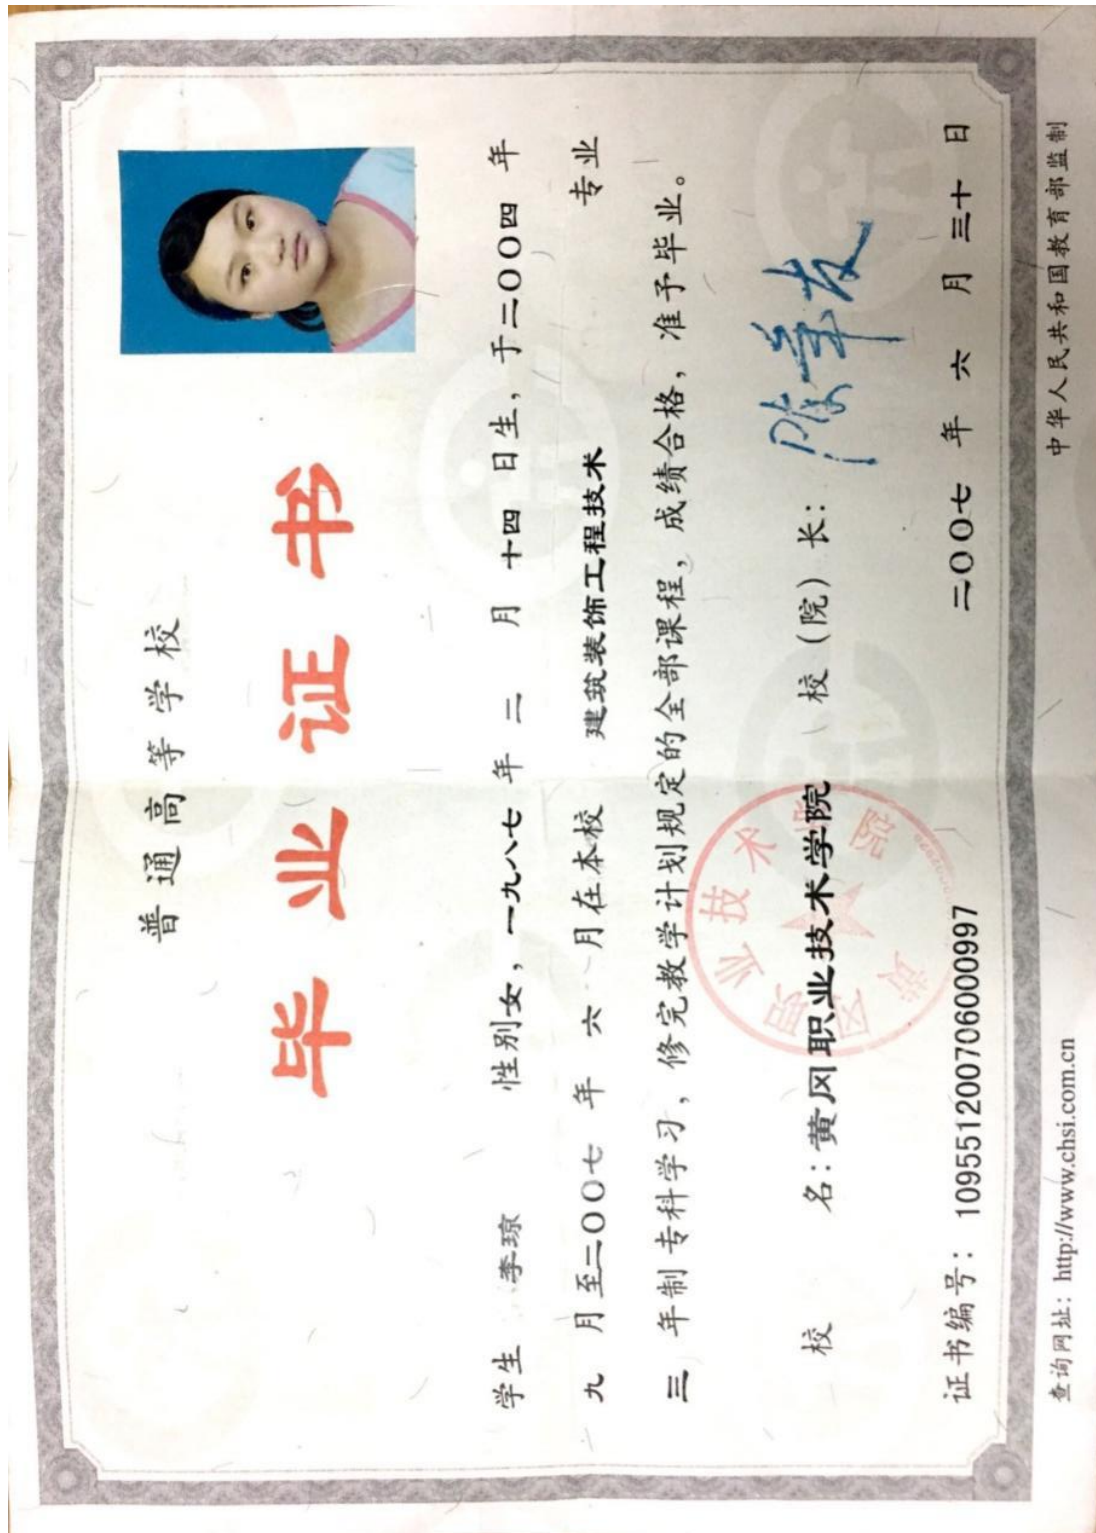 普通高等学校
毕业证书
学生 李琼 性别女，一九八七年 二 月 十四 日生，于二〇〇四 年
九 月至二〇〇七 年 六 月在本校 建筑装饰工程技术 专业
三 年制专科学习，修完教学计划规定的全部课程，成绩合格，准予毕业。
校 名：黄冈职业技术学院 校（院）长：
黄冈职业技术学院
证书编号：109551200706000997 二〇〇七 年 六 月 三十 日
查询网址：http://www.chsi.com.cn 中华人民共和国教育部监制